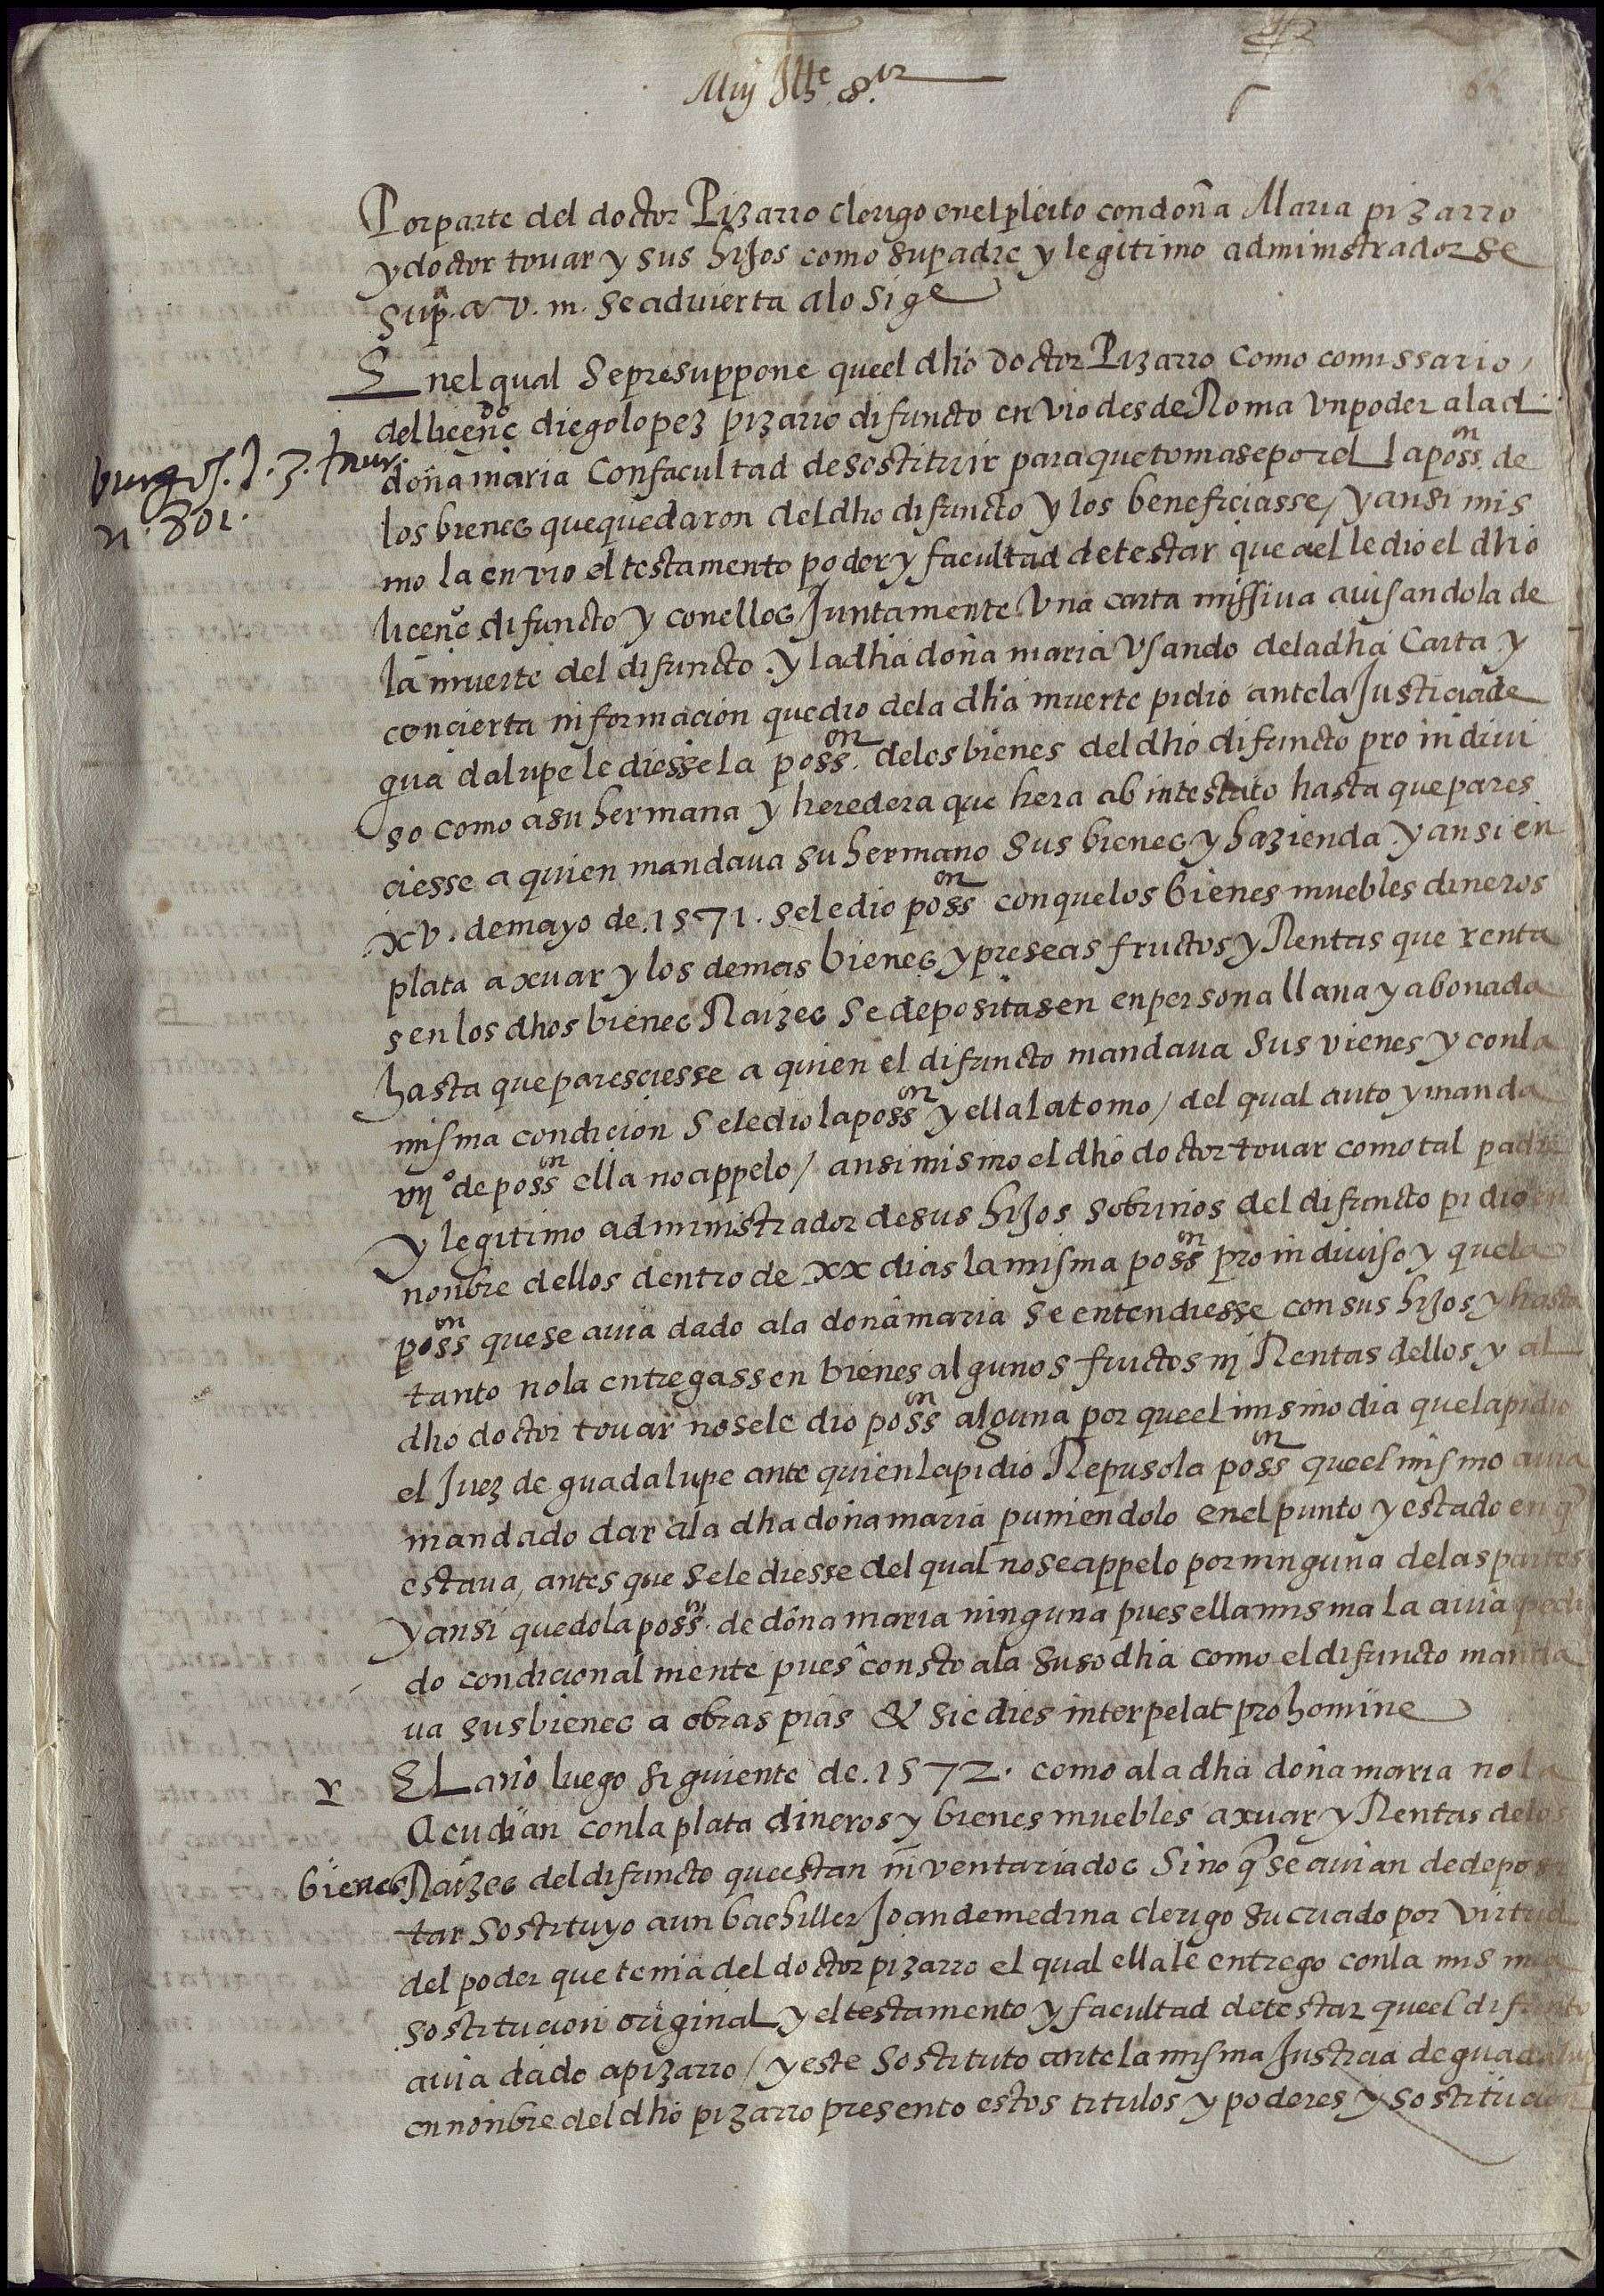 Muy Ill.e S.or
Por parte del doctor Pizarro clerigo en el pleito con doña Maria pizarro
y doctor touar y sus hijos como su padre y legitimo administrador se
sup.ca a v. m. se aduierta a lo sige
En el qual se presuppone que el dho doctor Pizarro como comissario
del licen.do diego lopez pizarro difuncto envio desde Roma vn poder a la d.
doña maria con facultad de sostituir para que tomase por el la poss.on de
los bienes que quedaron del dho difuncto y los beneficiasse / y ansi mis
mo la envio el testamento poder y facultad de testar que a el le dio el dho
licen.do difuncto y con ellos Juntamente vna carta missiua auisandola de
la muerte del difuncto. y la dha doña maria vsando de la dha Carta y
con cierta informacion que dio de la dha muerte pidio ante la Justicia de
guadalupe le diesse la poss.on de los bienes del dho difuncto pro indiui
so como a su hermana y heredera que hera ab intestato hasta que pares
ciesse a quien mandaua su hermano sus bienes y hazienda. y ansi en
xv. de mayo de .1571. se le dio poss.on con que los bienes muebles dineros
plata axuar y los demas bienes y preseas fructos y Rentas que renta
sen los dhos bienes Raizes se depositasen en persona llana y abonada
hasta que paresciesse a quien el difuncto mandaua sus vienes y con la
misma condicion se le dio la poss.on y ella la tomo / del qual auto y manda
mj.o de poss.on ella no appelo / ansi mismo el dho doctor touar como tal padre
y legitimo administrador de sus hijos sobrinos del difuncto pidio en
nonbre dellos dentro de xx dias la misma poss.on pro indiuiso y que la
poss.on que se auia dado a la doña maria se entendiesse con sus hijos y hasta
tanto no la entregassen bienes algunos fructos nj Rentas dellos y al
dho doctor touar no se le dio poss.on alguna por que el mismo dia que la pidio
el Juez de guadalupe ante quien la pidio Repuso la poss.on que el mismo auia
mandado dar a la dha doña maria puniendolo en el punto y estado en q
estaua antes que se le diesse del qual no se appelo por ninguna de las partes
y ansi quedo la poss.on de doña maria ninguna pues ella misma la auia pedi
do condicional mente pues consto a la suso dha como el difuncto manda
ua sus bienes a obras pias & sic dies interpelat pro homine
El año luego siguiente de .1572. como a la dha doña maria no la
Acudian con la plata dineros y bienes muebles axuar y Rentas de los
bienes Raizes del difuncto que estan inventariados sino q se auian de deposi
tar sostituyo a un bachiller Joan de medina clerigo su criado por virtud
del poder que tenia del doctor pizarro el qual ella le entrego con la misma
sostitucion original y el testamento y facultad de testar que el difunto
auia dado a pizarro / y este sostituto ante la misma Justicia de guadalup
en nonbre del dho pizarro presento estos titulos y poderes y sostitucion
n. 801.